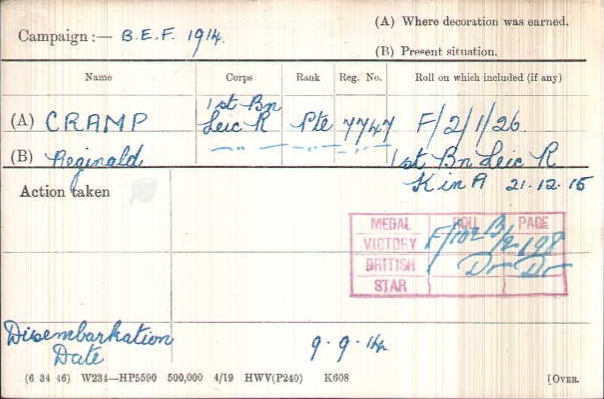 (A) Where decoration was earned.
Campaign :— B.E.F. 1914.
(B) Present situation.
Name Corps Rank Reg. No. Roll on which included (if any)
1st Bn
(A) CRAMP Leic R Pte 7747 F/2/1/26.
(B) Reginald —"— —"— —"— 1st Bn Leic R
K in A 21.12.15
Action taken
MEDAL ROLL PAGE
VICTORY F/102 B/2 198
BRITISH Do Do
STAR
Disembarkation
Date 9.9.14
(6 34 46) W234—HP5590 500,000 4/19 HWV(P240) K608 [OVER.